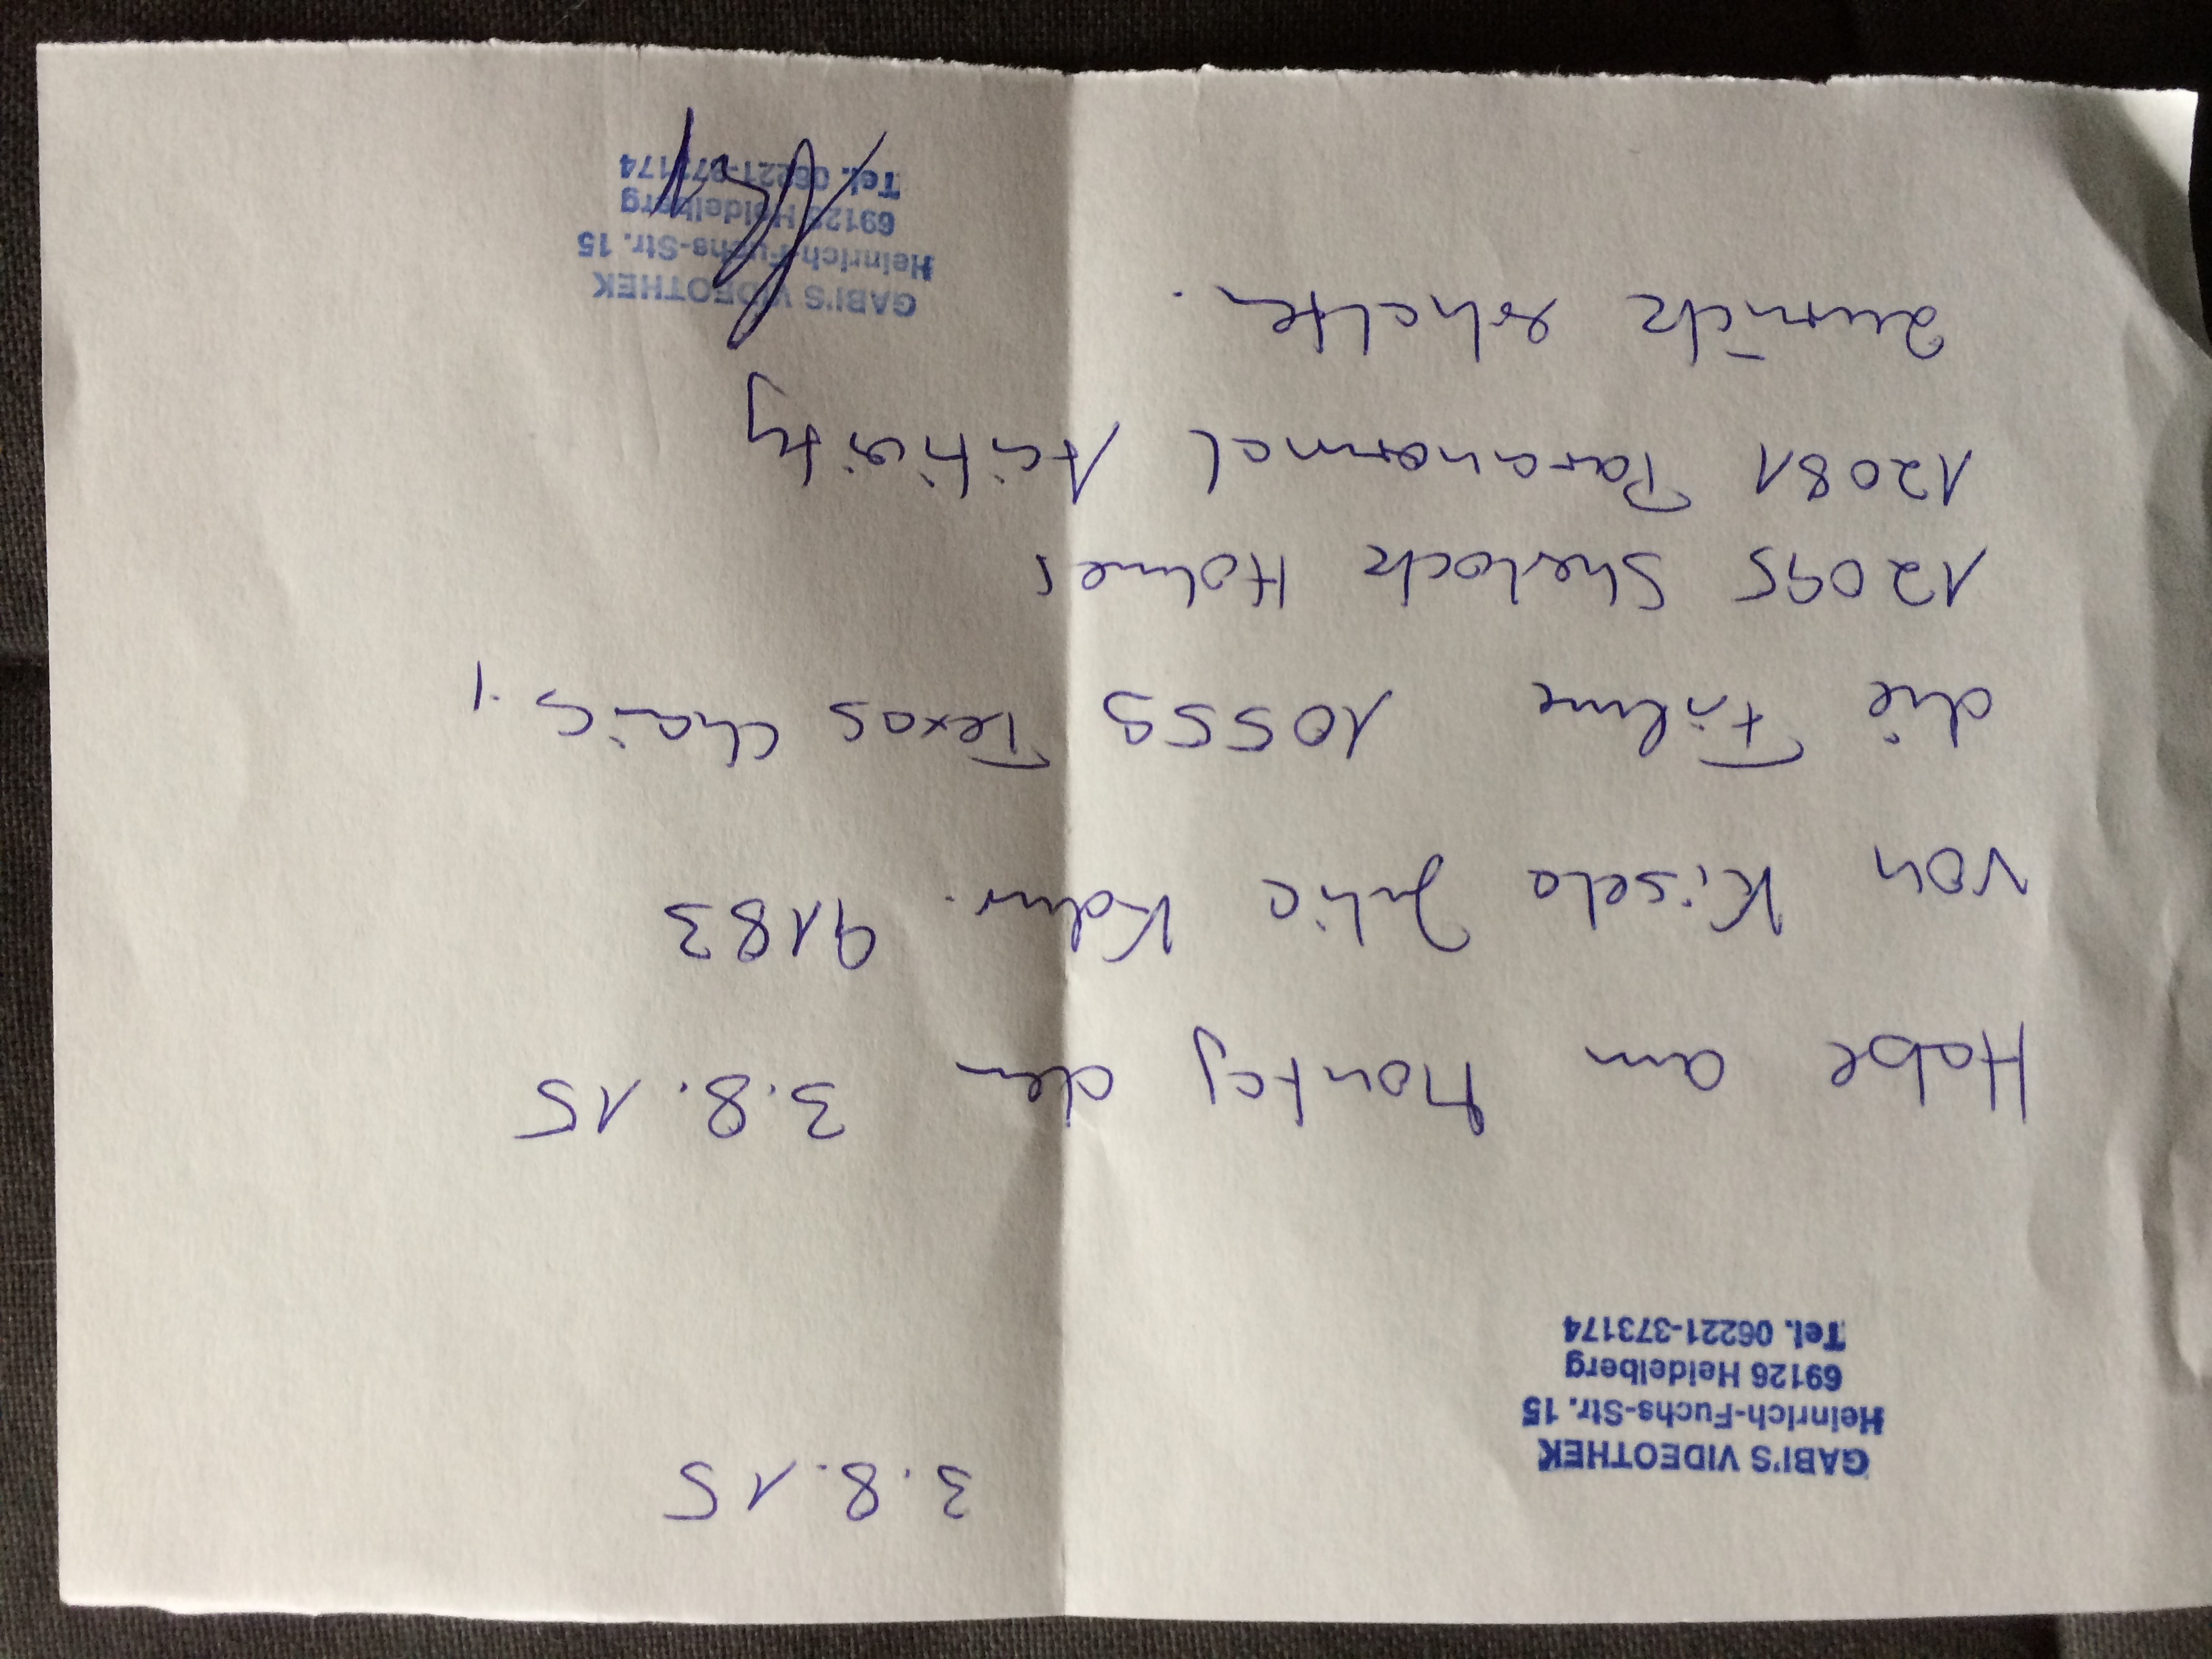 3.8.15
GABI'S VIDEOTHEK
Heinrich-Fuchs-Str. 15
69126 Heidelberg
Tel. 06221-373174
Habe am Montag den 3.8.15
von Kisela Julia Kdnr. 9183
die Filme 10559 Texas Chains.,
12095 Sherlock Holmes
12081 Paranormal Activity
zurück erhalten.
GABI'S VIDEOTHEK
Heinrich-Fuchs-Str. 15
69126 Heidelberg
Tel. 06221-373174